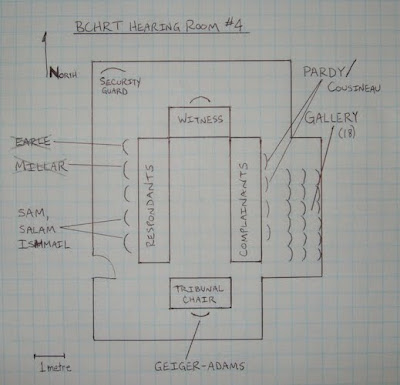 BCHRT HEARING ROOM #4
NORTH
SECURITY
GUARD
PARDY/
COUSINEAU
GALLERY
(18)
WITNESS
EARLE
MILLAR
RESPONDANTS
COMPLAINANTS
SAM,
SALAM
ISMMAIL
TRIBUNAL
CHAIR
1 metre
GEIGER-ADAMS